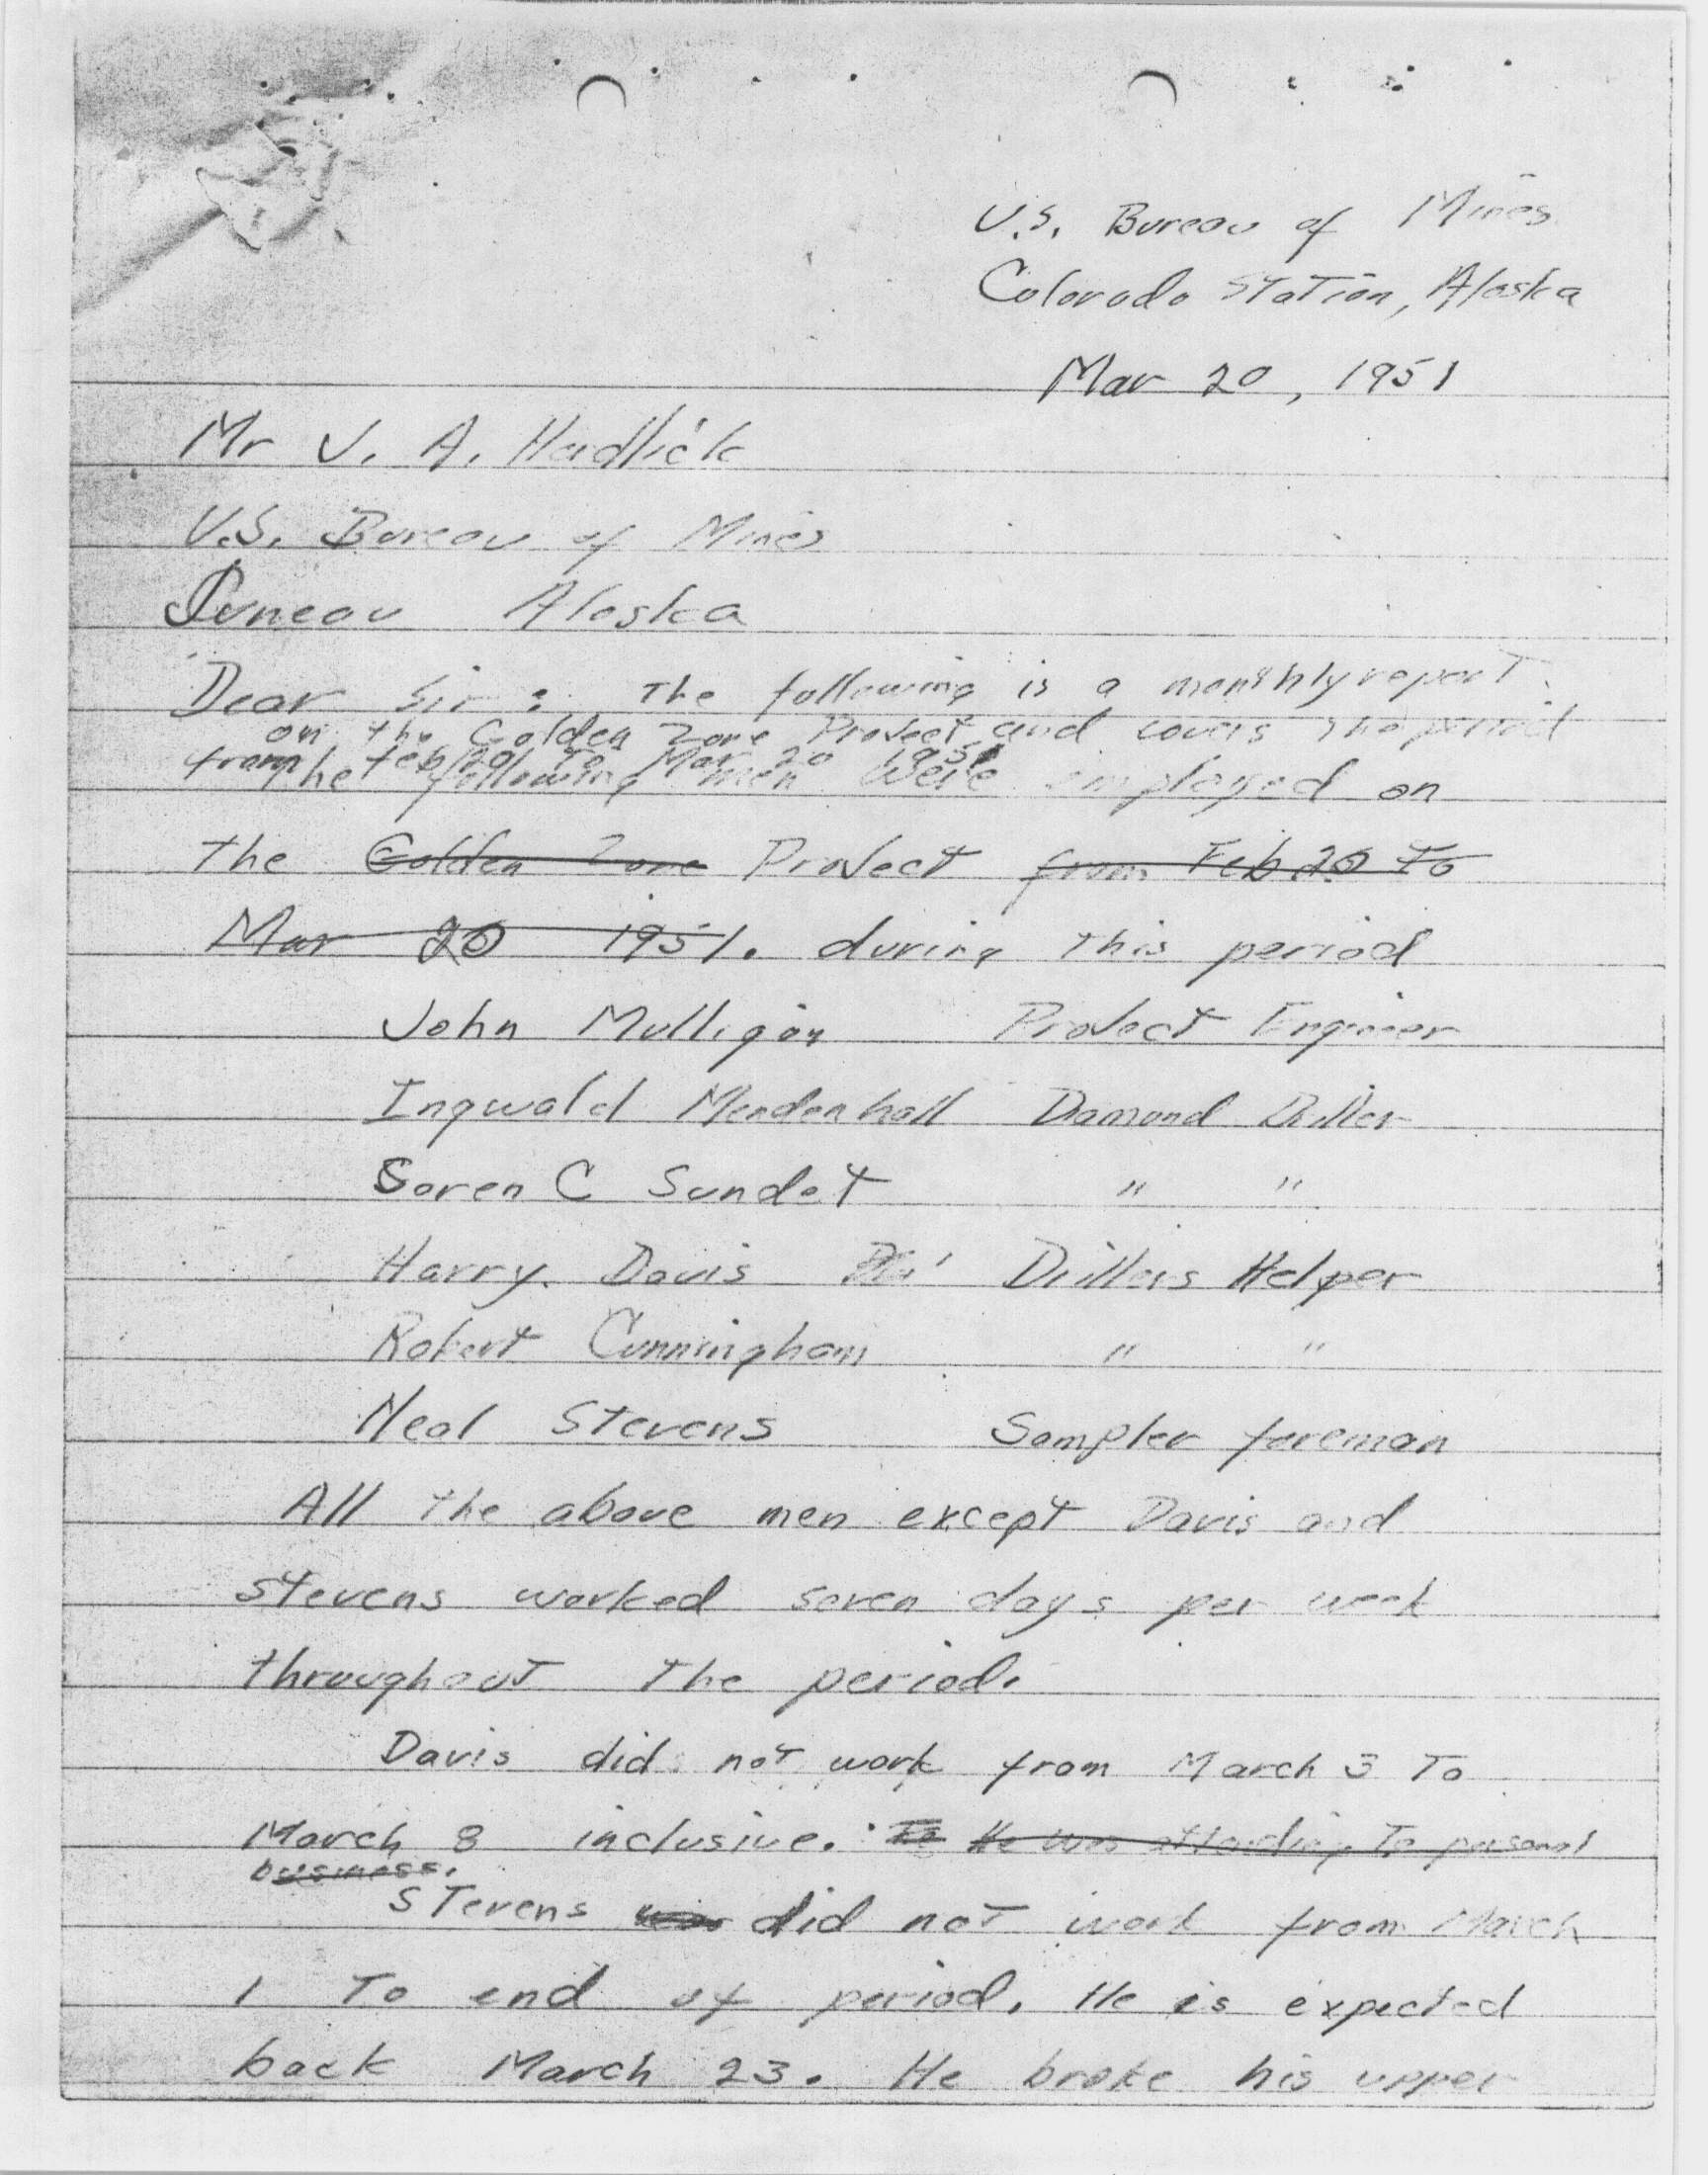 U.S. Bureau of Mines
Colorado Station, Alaska
Mar 20, 1951
Mr J. A. Herdlick
U.S. Bureau of Mines
Juneau Alaska
Dear Sir: The following is a monthly report
on the Golden Zone Project and covers the period
from Feb 20 to Mar 20 1951
The following men were employed on
the Golden Zone Project from Feb 20 to
Mar 20 1951. during this period
John Mulligan Project Engineer
Ingwald Mendenhall Diamond Driller
Soren C Sundet " "
Harry Davis Drillers Helper
Robert Cunningham " "
Neal Stevens Sampler foreman
All the above men except Davis and
Stevens worked seven days per week
throughout the period.
Davis did not work from March 3 To
March 8 inclusive. He was attending To personal
business.
Stevens was did not work from March
1 To end of period. He is expected
back March 23. He broke his upper